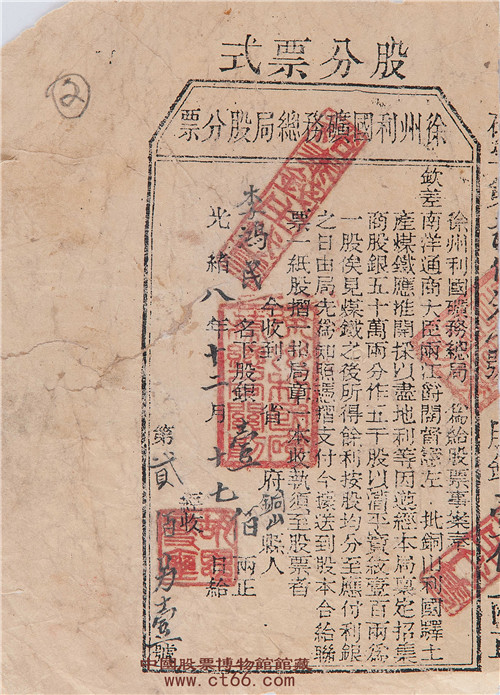 股分票式
徐州利國礦務總局股分票
徐州利國礦務總局 為給股票事案奉
欽差南洋通商大臣兩江爵閣督憲左 批銅山利國驛土
產煤鐵應准開採以盡地利等因遵經本局稟定招集
商股銀五十萬兩分作五千股以漕平寶紋壹百兩為
一股俟見煤鐵之後所得餘利按股均分至應付利銀
之日由局先為知照憑摺支付今據送到股本合給聯
票一紙股摺一扣局單一本收執須至股票者
今收到 省 府銅山縣人
李鴻民 名下股銀壹佰 兩正
光緒八年十一月十七日給
經收
第貳百另壹號
②
中國股票博物館館藏
www.ct66.com